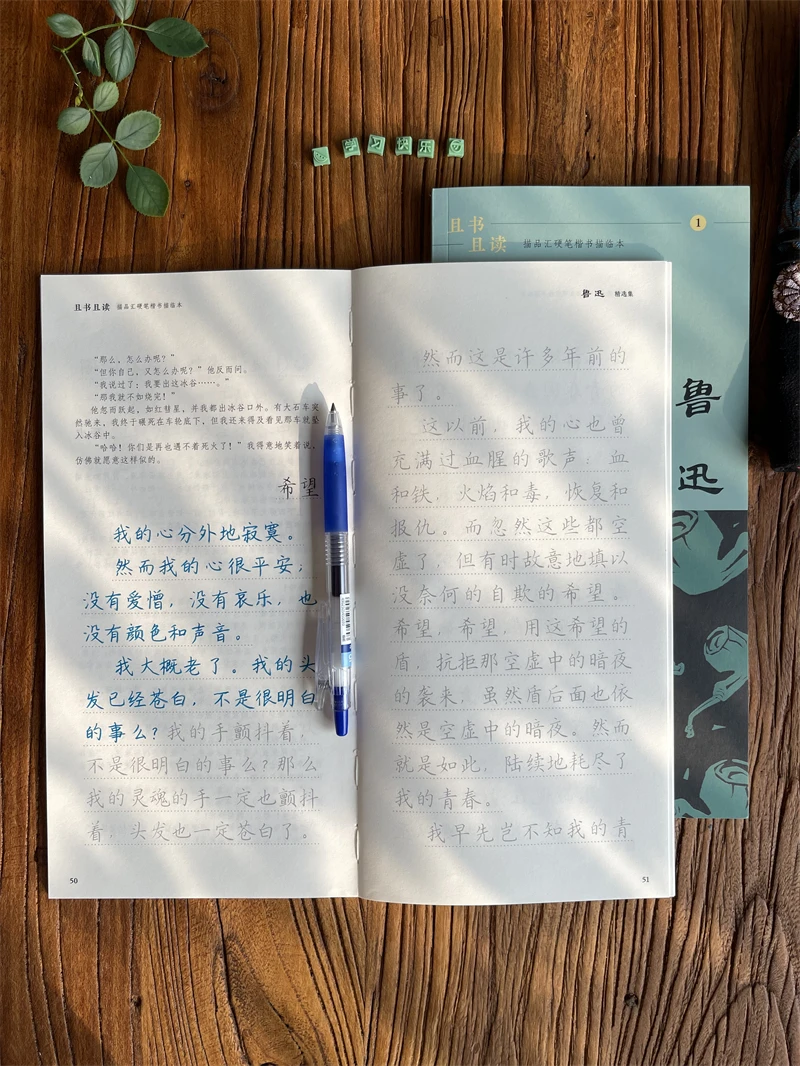 学习快乐
且书
且读 描品汇硬笔楷书描临本
1
鲁
迅
且书且读 描品汇硬笔楷书描临本
“那么，怎么办呢？”
“但你自己，又怎么办呢？”他反而问。
“我说过了：我要出这冰谷……。”
“那我就不如烧完！”
他忽而跃起，如红彗星，并我都出冰谷口外。有大石车突
然驰来，我终于碾死在车轮底下，但我还来得及看见那车就坠
入冰谷中。
“哈哈！你们是再也遇不着死火了！”我得意地笑着说，
仿佛就愿意这样似的。
希望
我的心分外地寂寞。
然而我的心很平安；
没有爱憎，没有哀乐，也
没有颜色和声音。
我大概老了。我的头
发已经苍白，不是很明白
的事么？我的手颤抖着，
不是很明白的事么？那么
我的灵魂的手一定也颤抖
着，头发也一定苍白了。
50
鲁迅 精选集
然而这是许多年前的
事了。
这以前，我的心也曾
充满过血腥的歌声：血
和铁，火焰和毒，恢复和
报仇。而忽然这些都空
虚了，但有时故意地填以
没奈何的自欺的希望。
希望，希望，用这希望的
盾，抗拒那空虚中的暗夜
的袭来，虽然盾后面也依
然是空虚中的暗夜。然而
就是如此，陆续地耗尽了
我的青春。
我早先岂不知我的青
51